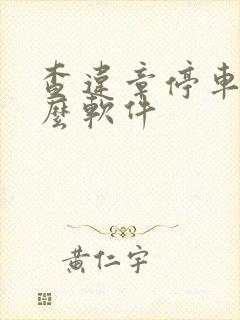 查違章停車
麼軟件
黃仁宇